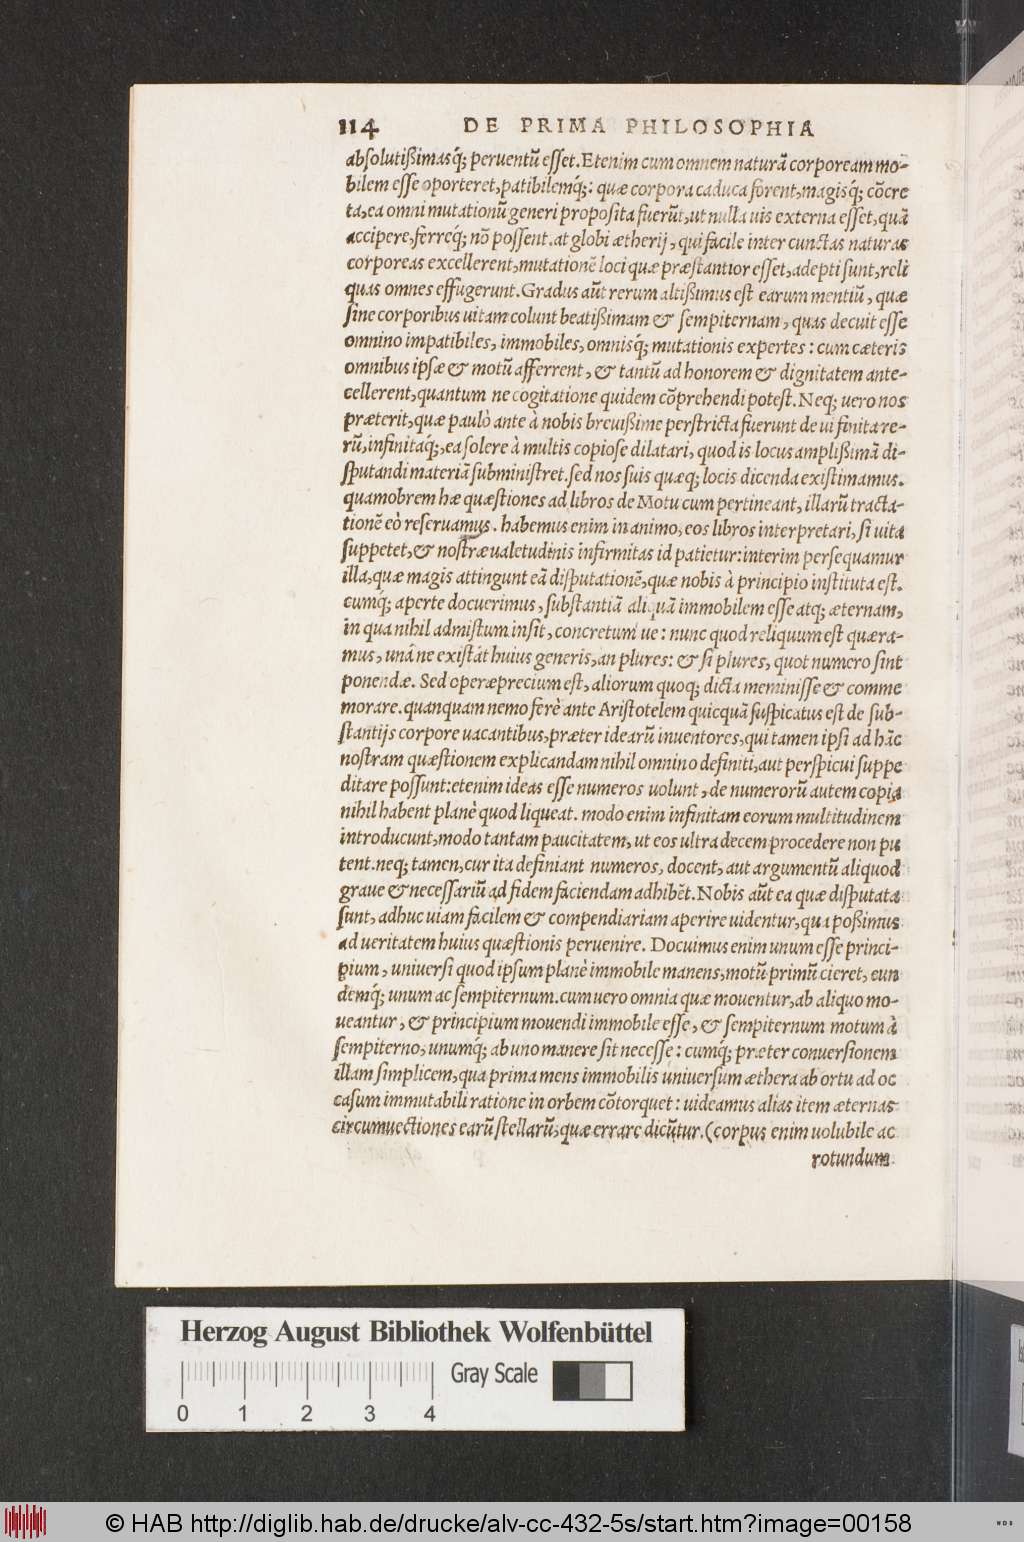 114 DE PRIMA PHILOSOPHIA
absolutißimasq́; peruentũ esset. Etenim cum omnem naturã corpoream mo-
bilem esse oporteret, patibilemq́;: quæ corpora caduca forent, magisq́; cõcre
ta, ea omni mutationũ generi proposita fuerũt, ut nulla uis externa esset, quã
accipere, ferreq́; nõ possent. at globi ætherij, qui facile inter cunctas naturas
corporeas excellerent, mutationẽ loci quæ præstantior esset, adepti sunt, reli
quas omnes effugerunt. Gradus aũt rerum altißimus est earum mentiũ, quæ
sine corporibus uitam colunt beatißimam & sempiternam, quas decuit esse
omnino impatibiles, immobiles, omnisq́; mutationis expertes: cum cæteris
omnibus ipsæ & motũ afferrent, & tantũ ad honorem & dignitatem ante-
cellerent, quantum ne cogitatione quidem cõprehendi potest. Neq; uero nos
præterit, quæ paulò ante à nobis breuißime perstricta fuerunt de ui finita re-
rũ, infinitaq́;, ea solere à multis copiose dilatari, quod is locus amplißimã di-
sputandi materiã subministret. sed nos suis quæq; locis dicenda existimamus.
quamobrem hæ quæstiones ad libros de Motu cum pertineant, illarũ tracta-
tionẽ eò reseruamus. habemus enim in animo, eos libros interpretari, si uita
suppetet, & nostræ ualetudinis infirmitas id patietur: interim persequamur
illa, quæ magis attingunt eã disputationẽ, quæ nobis à principio instituta est.
cumq́; aperte docuerimus, substantiã aliquã immobilem esse atq; æternam,
in qua nihil admistum insit, concretum ue: nunc quod reliquum est quæra-
mus, unáne existãt huius generis, an plures: & si plures, quot numero sint
ponendæ. Sed operæprecium est, aliorum quoq; dicta meminisse & comme
morare. quanquam nemo ferè ante Aristotelem quicquã suspicatus est de sub-
stantijs corpore uacantibus, præter idearũ inuentores, qui tamen ipsi ad hãc
nostram quæstionem explicandam nihil omnino definiti, aut perspicui suppe
ditare possunt: etenim ideas esse numeros uolunt, de numerorũ autem copia
nihil habent planè quod liqueat. modo enim infinitam eorum multitudinem
introducunt, modo tantam paucitatem, ut eos ultra decem procedere non pu
tent. neq; tamen, cur ita definiant numeros, docent, aut argumentũ aliquod
graue & necessariũ ad fidem faciendam adhibẽt. Nobis aũt ea quæ disputata
sunt, adhuc uiam facilem & compendiariam aperire uidentur, qua poßimus
ad ueritatem huius quæstionis peruenire. Docuimus enim unum esse princi-
pium, uniuersi quod ipsum planè immobile manens, motũ primũ cieret, eun
demq́; unum ac sempiternum. cum uero omnia quæ mouentur, ab aliquo mo-
ueantur, & principium mouendi immobile esse, & sempiternum motum à
sempiterno, unumq́; ab uno manere sit necesse: cumq́; præter conuersionem
illam simplicem, qua prima mens immobilis uniuersum æthera ab ortu ad oc
casum immutabili ratione in orbem cõtorquet: uideamus alias item æternas
circumuectiones earũ stellarũ, quæ errare dicũtur. (corpus enim uolubile ac
rotundum
Herzog August Bibliothek Wolfenbüttel
Gray Scale
0 1 2 3 4
© HAB http://diglib.hab.de/drucke/alv-cc-432-5s/start.htm?image=00158